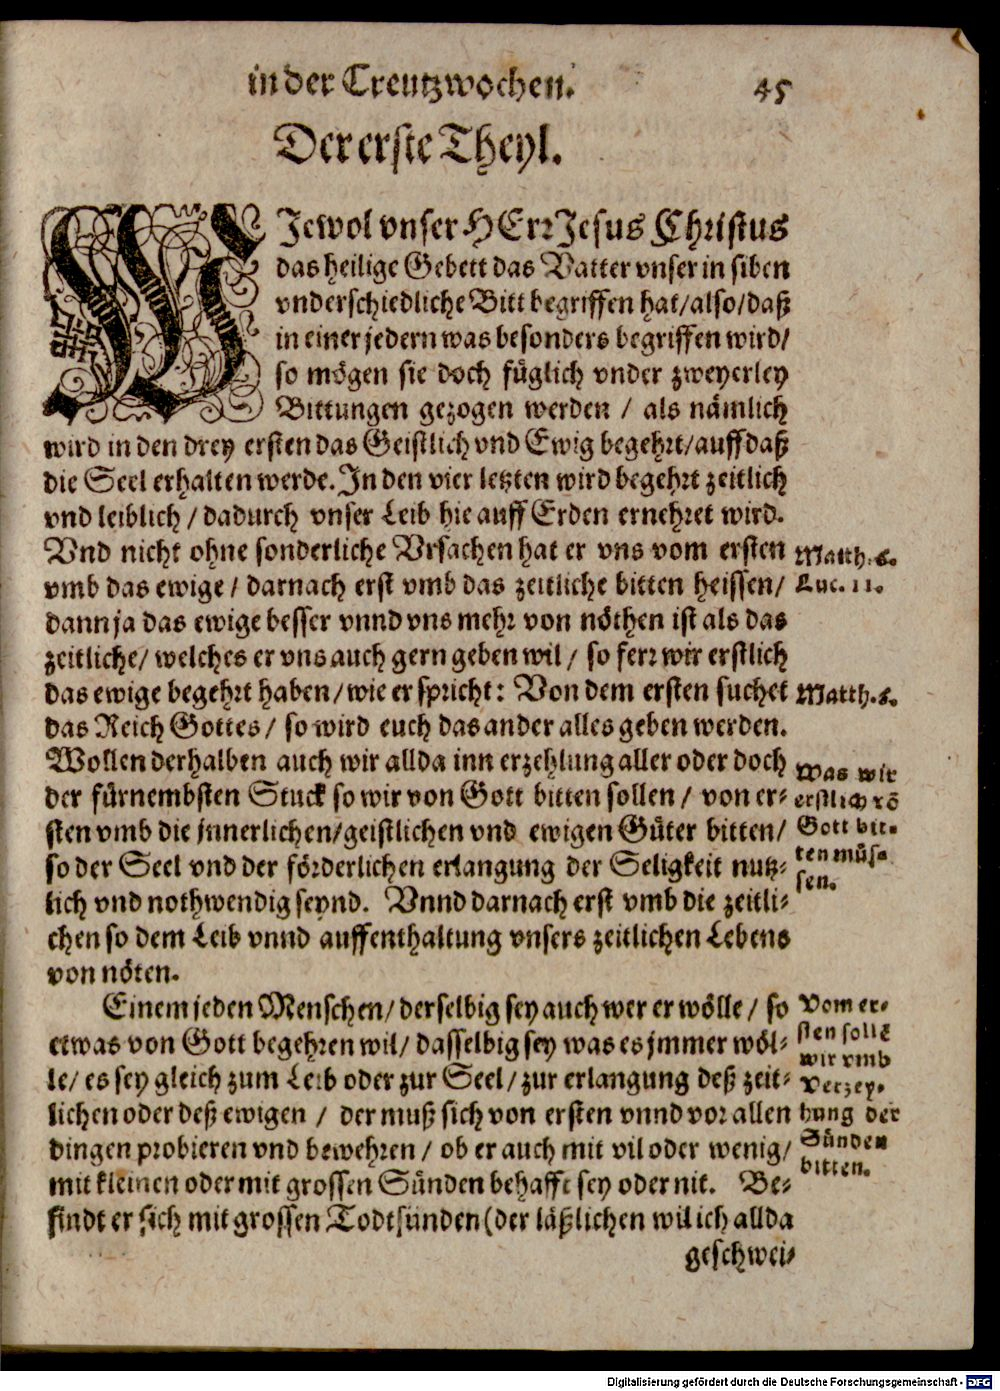 in der Creutzwochen. 45
Der erste Theyl.
WJewol vnser HErr Jesus Christus
das heilige Gebett das Vatter vnser in siben
vnderschiedliche Bitt begriffen hat/also/daß
in einer jedern was besonders begriffen wird/
so mögen sie doch füglich vnder zweyerley
Bittungen gezogen werden / als nämlich
wird in den drey ersten das Geistlich vnd Ewig begehrt/auff daß
die Seel erhalten werde. Jn den vier letzten wird begehrt zeitlich
vnd leiblich / dadurch vnser Leib hie auff Erden ernehret wird.
Vnd nicht ohne sonderliche Vrsachen hat er vns vom ersten
vmb das ewige / darnach erst vmb das zeitliche bitten heissen/
dann ja das ewige besser vnnd vns mehr von nöthen ist als das
zeitliche/ welches er vns auch gern geben wil / so ferr wir erstlich
das ewige begehrt haben/wie er spricht: Von dem ersten suchet
das Reich Gottes / so wird euch das ander alles geben werden.
Wollen derhalben auch wir allda inn erzehlung aller oder doch
der fürnembsten Stuck so wir von Gott bitten sollen / von er-
sten vmb die jnnerlichen/geistlichen vnd ewigen Güter bitten/
so der Seel vnd der förderlichen erlangung der Seligkeit nutz-
lich vnd nothwendig seynd. Vnnd darnach erst vmb die zeitli-
chen so dem Leib vnnd auffenthaltung vnsers zeitlichen Lebens
von nöten.
Einem jeden Menschen/ derselbig sey auch wer er wölle / so
etwas von Gott begehren wil/ dasselbig sey was es jmmer wöl-
le/ es sey gleich zum Leib oder zur Seel/ zur erlangung deß zeit-
lichen oder deß ewigen / der muß sich von ersten vnnd vor allen
dingen probieren vnd bewehren / ob er auch mit vil oder wenig/
mit kleinen oder mit grossen Sünden behafft sey oder nit. Be-
findt er sich mit grossen Todtsünden (der läßlichen wil ich allda
geschwei-
Matth. 6.
Luc. 11.
Matth. 6.
Was wir
erstlich võ
Gott bit-
ten müs-
sen.
Vom er-
sten sollẽ
wir vmb
Verzey-
hung der
Sünden
bitten.
Digitalisierung gefördert durch die Deutsche Forschungsgemeinschaft - DFG